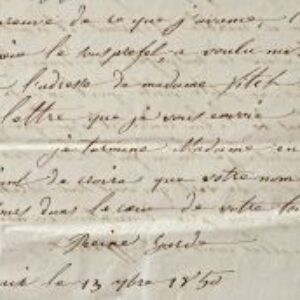 preuve de ce que j'avance, l
le sous préfet, a voulu me
l'adresse de madame
lettre que je vous envoie
je termine Madame en
de croire que votre nom
dans le cœur de votre
Reine Garde
le 13 9bre 1850